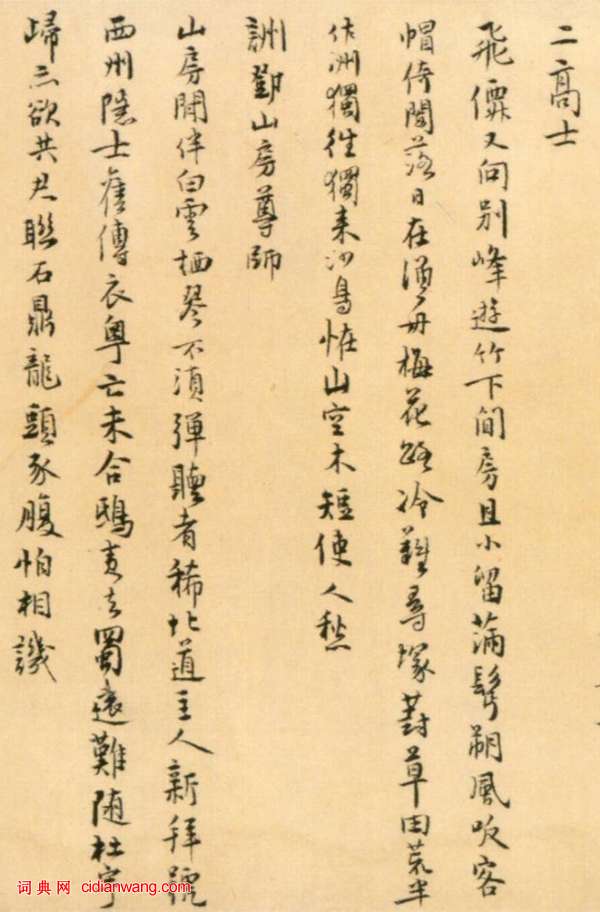 二高士
飛僊又向别峰遊竹下閒房且小留滿鬂朔風吹客
帽倚闌落日在漁舟梅花路冷難尋塚葑草田荒半
作洲獨往獨来沙鳥恠山空木短使人愁
訓鄧山房尊師
山房閒伴白雲栖琴不須彈聽者稀北道主人新拜號
西州隱士舊傳衣粤亡未合鴟夷去蜀遠難随杜宇
歸亦欲共君聯石鼎龍頭豕腹怕相譏
词典网 cidianwang.com